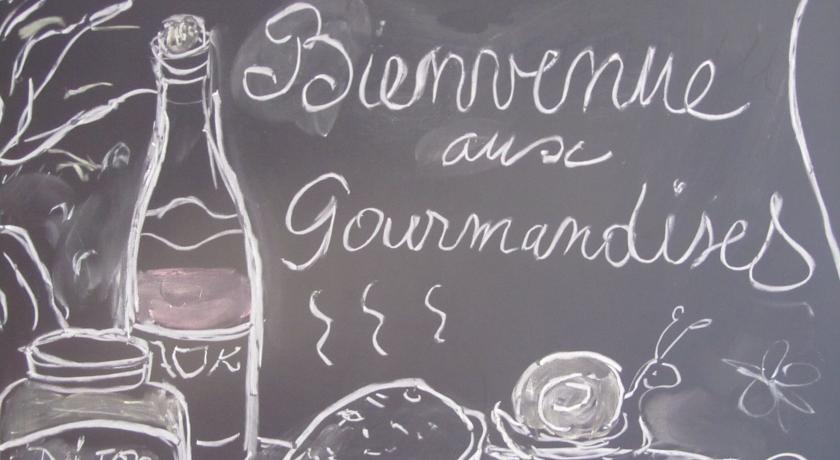 Bienvenue
aux
Gourmandises